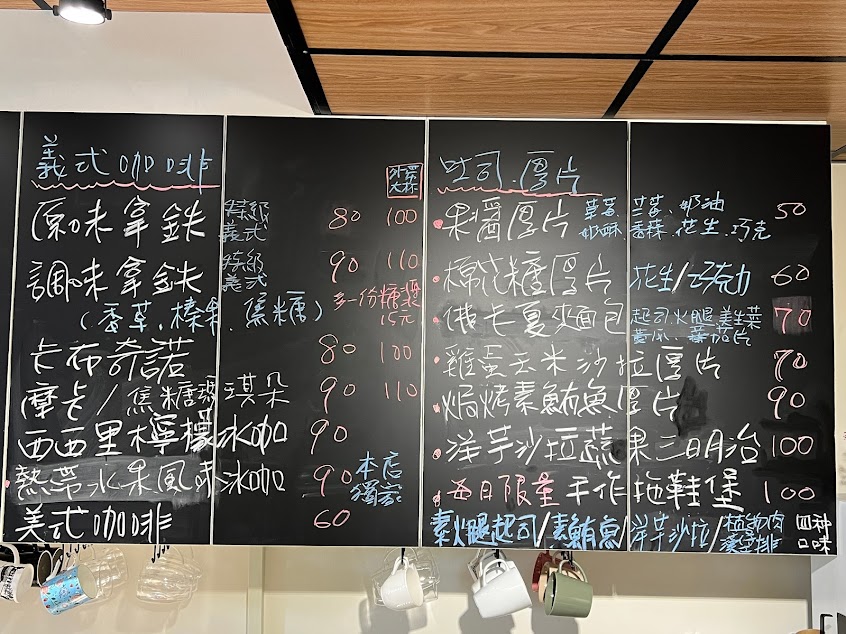 義式咖啡
外帶大杯
原味拿鉄 特級義式 80 100
調味拿鉄 特級義式 90 110
(香草.榛果.焦糖) 多一份糖漿15元
卡布奇諾 80 100
摩卡/焦糖瑪琪朵 90 110
西西里檸檬冰咖 90
熱帶水果風味冰咖 90 本店獨家
美式咖啡 60
吐司.厚片
果醬厚片 草莓.蘭莓.奶油 50
奶酥.香蒜.花生.巧克
棉花糖厚片 花生/巧克力 60
俄卡夏麵包 起司.火腿.美生菜 70
黃瓜.蕃茄片
雞蛋玉米沙拉厚片 70
焗烤素鮪魚厚片 90
洋芋沙拉蔬果三明治 100
每日限量 手作拖鞋堡 100
素火腿起司/素鮪魚/洋芋沙拉/植物肉 四种口味